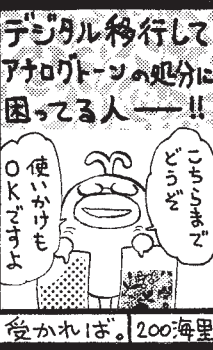 デジタル移行して
アナログトーンの処分に
困ってる人――!!
こちらまで
どうぞ
使いかけも
OKですよ
受かれば。
200海里